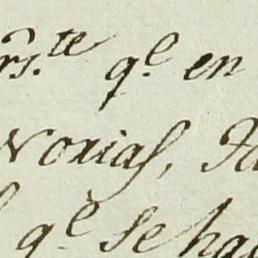 rs.te q.e en
Norias, Ta
q.e se hac